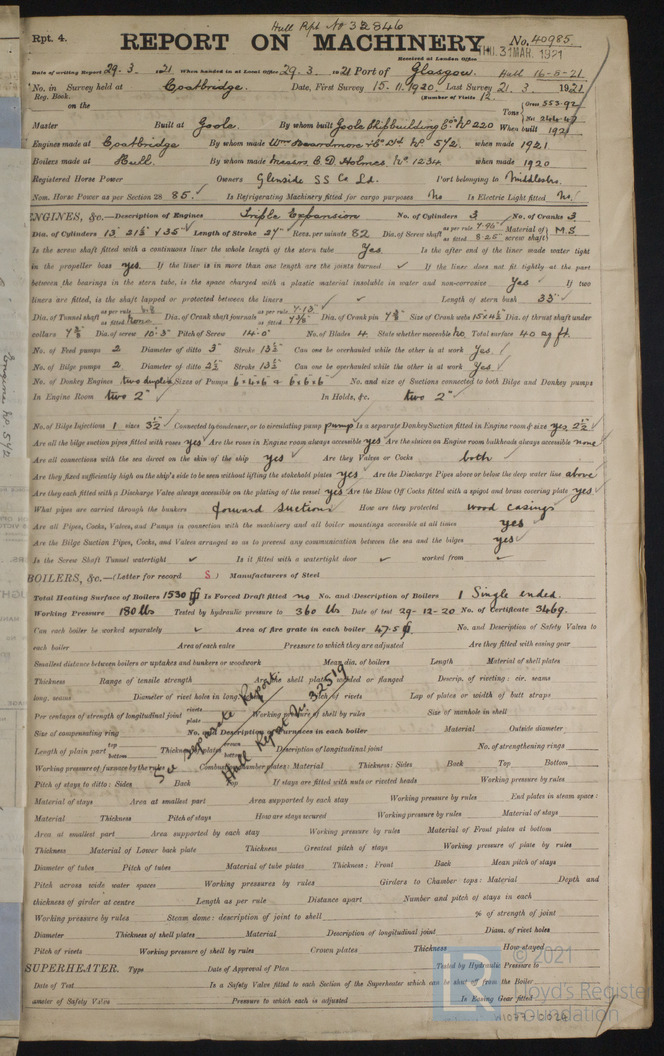 Hull Rpt No 32846
Rpt. 4.
REPORT ON MACHINERY. No. 40985
Received at London Office THU. 31 MAR. 1921
Date of writing Report 29.3.1921 When handed in at Local Office 29.3.1921 Port of Glasgow. Hull 16-5-21
No. in Survey held at Coatbridge. Date, First Survey 15.11.1920. Last Survey 21.3.1921
Reg. Book. (Number of Visits 12.
on the Tons Gross 553.92
Net
Master Built at Goole. By whom built Goole Shipbuilding Co. No 220 When built 1921
Engines made at Coatbridge By whom made Wm Beardmore & Co Ld No 572. when made 1921.
Boilers made at Hull. By whom made Messrs C.D. Holmes, No 1234 when made 1920
Registered Horse Power Owners Glenside SS Co Ld. Port belonging to Middlesbro.
Nom. Horse Power as per Section 28 85. Is Refrigerating Machinery fitted for cargo purposes No Is Electric Light fitted No.
ENGINES, &c.—Description of Engines Triple Expansion No. of Cylinders 3 No. of Cranks 3
Dia. of Cylinders 13" 21½" & 35" Length of Stroke 24" Revs. per minute 82 Dia. of Screw shaft as per rule 7.96" as fitted 8.25" Material of screw shaft M.S.
Is the screw shaft fitted with a continuous liner the whole length of the stern tube Yes. Is the after end of the liner made water tight
in the propeller boss yes. If the liner is in more than one length are the joints burned ✓ If the liner does not fit tightly at the part
between the bearings in the stern tube, is the space charged with a plastic material insoluble in water and non-corrosive Yes ✓ If two
liners are fitted, is the shaft lapped or protected between the liners ✓ Length of stern bush 33"
Dia. of Tunnel shaft as per rule as fitted none Dia. of Crank shaft journals as per rule 7.13" as fitted 7⅜" Dia. of Crank pin 7⅜" Size of Crank webs 15×4½ Dia. of thrust shaft under
collars 7⅜" Dia. of screw 10'-3" Pitch of Screw 14'-0" No. of Blades 4. State whether moveable No. Total surface 40 sq ft.
No. of Feed pumps 2 Diameter of ditto 3" Stroke 13½" Can one be overhauled while the other is at work Yes.
No. of Bilge pumps 2 Diameter of ditto 2½" Stroke 13½" Can one be overhauled while the other is at work Yes.
No. of Donkey Engines two duplex Sizes of Pumps 6×6×6 & 6×6×6 No. and size of Suctions connected to both Bilge and Donkey pumps
In Engine Room two 2" In Holds, &c. two 2"
No. of Bilge Injections 1 sizes 3½" Connected to condenser, or to circulating pump pump Is a separate Donkey Suction fitted in Engine room & size yes 2½"
Are all the bilge suction pipes fitted with roses yes Are the roses in Engine room always accessible yes Are the sluices on Engine room bulkheads always accessible none
Are all connections with the sea direct on the skin of the ship yes Are they Valves or Cocks both
Are they fixed sufficiently high on the ship's side to be seen without lifting the stokehold plates yes Are the Discharge Pipes above or below the deep water line above
Are they each fitted with a Discharge Valve always accessible on the plating of the vessel yes Are the Blow Off Cocks fitted with a spigot and brass covering plate yes
What pipes are carried through the bunkers forward suction How are they protected wood casings
Are all Pipes, Cocks, Valves, and Pumps in connection with the machinery and all boiler mountings accessible at all times yes
Are the Bilge Suction Pipes, Cocks, and Valves arranged so as to prevent any communication between the sea and the bilges yes
Is the Screw Shaft Tunnel watertight ✓ Is it fitted with a watertight door ✓ worked from ✓
BOILERS, &c.—(Letter for record S) Manufacturers of Steel
Total Heating Surface of Boilers 1530 Is Forced Draft fitted no No. and Description of Boilers 1 Single ended.
Working Pressure 180 lbs Tested by hydraulic pressure to 360 lbs Date of test 29-12-20 No. of Certificate 3469.
Can each boiler be worked separately ✓ Area of fire grate in each boiler 47.5 No. and Description of Safety Valves to
each boiler Area of each valve Pressure to which they are adjusted Are they fitted with easing gear
Smallest distance between boilers or uptakes and bunkers or woodwork Mean dia. of boilers Length Material of shell plates
Thickness Range of tensile strength Are the shell plates welded or flanged Descrip. of riveting: cir. seams
long. seams Diameter of rivet holes in long. Pitch of rivets Lap of plates or width of butt straps
Per centages of strength of longitudinal joint rivets plate Working pressure of shell by rules Size of manhole in shell
Size of compensating ring No. and Description of Furnaces in each boiler Material Outside diameter
Length of plain part top bottom Thickness of plates crown bottom Description of longitudinal joint No. of strengthening rings
Working pressure of furnace by the rules Combustion chamber plates: Material Thickness: Sides Back Top Bottom
Pitch of stays to ditto: Sides Back Top If stays are fitted with nuts or riveted heads Working pressure by rules
See Separate Report
Hull Report No 32519
Material of stays Area at smallest part Area supported by each stay Working pressure by rules End plates in steam space:
Material Thickness Pitch of stays How are stays secured Working pressure by rules Material of stays
Area at smallest part Area supported by each stay Working pressure by rules Material of Front plates at bottom
Thickness Material of Lower back plate Thickness Greatest pitch of stays Working pressure of plate by rules
Diameter of tubes Pitch of tubes Material of tube plates Thickness: Front Back Mean pitch of stays
Pitch across wide water spaces Working pressures by rules Girders to Chamber tops: Material Depth and
thickness of girder at centre Length as per rule Distance apart Number and pitch of stays in each
Working pressure by rules Steam dome: description of joint to shell % of strength of joint
Diameter Thickness of shell plates Material Description of longitudinal joint Diam. of rivet holes
Pitch of rivets Working pressure of shell by rules Crown plates Thickness How stayed
SUPERHEATER. Type Date of Approval of Plan Tested by Hydraulic Pressure to
Date of Test Is a Safety Valve fitted to each Section of the Superheater which can be shut off from the Boiler
ameter of Safety Valve Pressure to which each is adjusted Is Easing Gear fitted
Engine No. 572
LR
© 2021
Lloyd's Register
Foundation